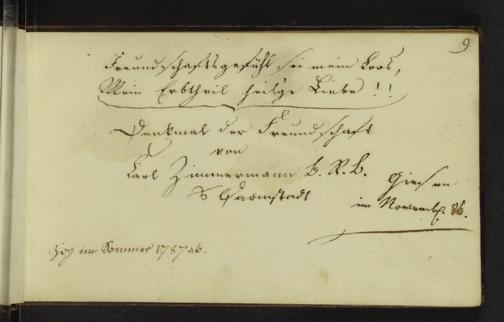 9
Freundschaftsgefühl sei mein Loos,
Mein Erbtheil heilge Liebe !!
Denkmal der Freundschaft
von
Karl Zimmermann
Darmstadt
Giesen
im Novemb. 86.
Zog im Sommer 1787 ab.